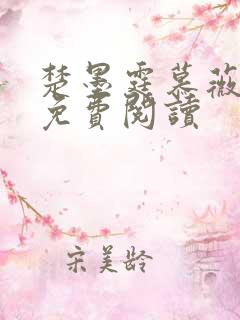 楚墨霆慕薇
免費閱讀
宋美龄